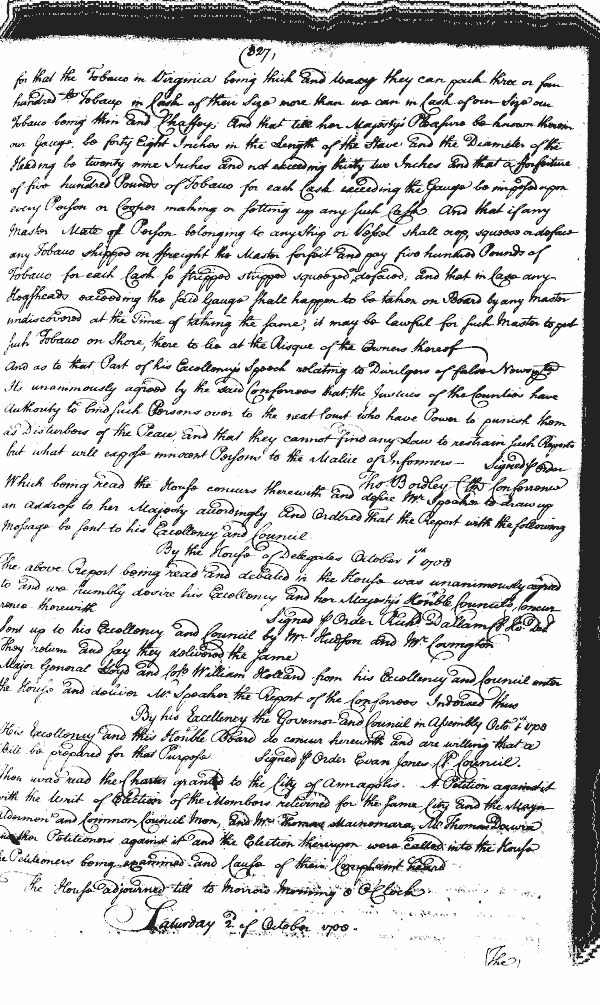 (327)
for that the Tobacco in Virginia being thick and waxy they can pack three or four
hundred of Tobacco in Cask of their Size more than we can in Cask of our Size our
Tobacco being thin and Chaffey, And that till her Majestys Pleasure be known therein
our Gauge be forty Eight Inches in the Length of the Stave and the Diameter of the
Heading be twenty nine Inches and not exceeding thirty two Inches and that a fforfeiture
of five hundred Pounds of Tobacco for each Cask exceeding the Gauge be imposed upon
every Person or Cooper making or setting up any such Cask And that if any
Master Mate or Person belonging to any Ship or Vessel shall crop, squeeze or deface
any Tobacco shipped on ffreight the Master forfeit and pay five hundred Pounds of
Tobacco for each Cask so stripped squeezed defaced, and that in Case any
Hogsheads exceeding the said Gauge shall happen to be taken on Board by any Master
undiscovered at the Time of taking the same, it may be lawful for such Master to put
such Tobacco on Shore, there to lie at the Risque of the Owners thereof
And as to that Part of his Excellency's Speech relating to Divulgers of false News
Its unanimously agreed by the said Conferrees that the Justices of the Counties have
Authority to bind such Persons over to the next Court who have Power to punish them
as Disturbers of the Peace, and that they cannot find any Law to restrain such Reports
but what will expose innocent Persons to the Malice of Informers — Signed p Order
Tho Bordley Clk Conferrence
Which being read the House concurs therewith and desire Mr Speaker to draw up
an Address to her Majesty accordingly and Ordered That the Report with the following
Message be sent to his Excellency and Council
By the House of Delegates October 1st 1708
The above Report being read and debated in the House was unanimously agreed
to and we humbly desire his Excellency and her Majestys Honble Councils concur
rence therewith Signed p Order Richd Dallam Cl Ho: Del
Sent up to his Excellency and Council by Mr Hudson and Mr Covington
They return and say they delivered the same
Major General Lloyd and Colo William Holland from his Excellency and Council enter
the House and deliver Mr Speaker the Report of the Conferrees Indorsed thus
By his Excellency the Governor and Council in Assembly Octo 1st 1708
His Excellency and this Honble Board do concur herewith and are willing that a
Bill be prepared for that Purpose Signed p Order Evan Jones Cl Council.
Then was read the Charter granted to the City of Annapolis. A Petition against it
with the Writ of Election of the Members returned for the same City and the Mayor
Aldermen and Common Council Men, and Mr Thomas Macnemara, Mr Thomas
another Petitioners against it and the Election thereupon were called into the House
the Petitioners being examined and Cause of their Complaint heard
The House adjourned till to Morrow Morning 8 o'Clock
Saturday 2d of October 1708.
(The)